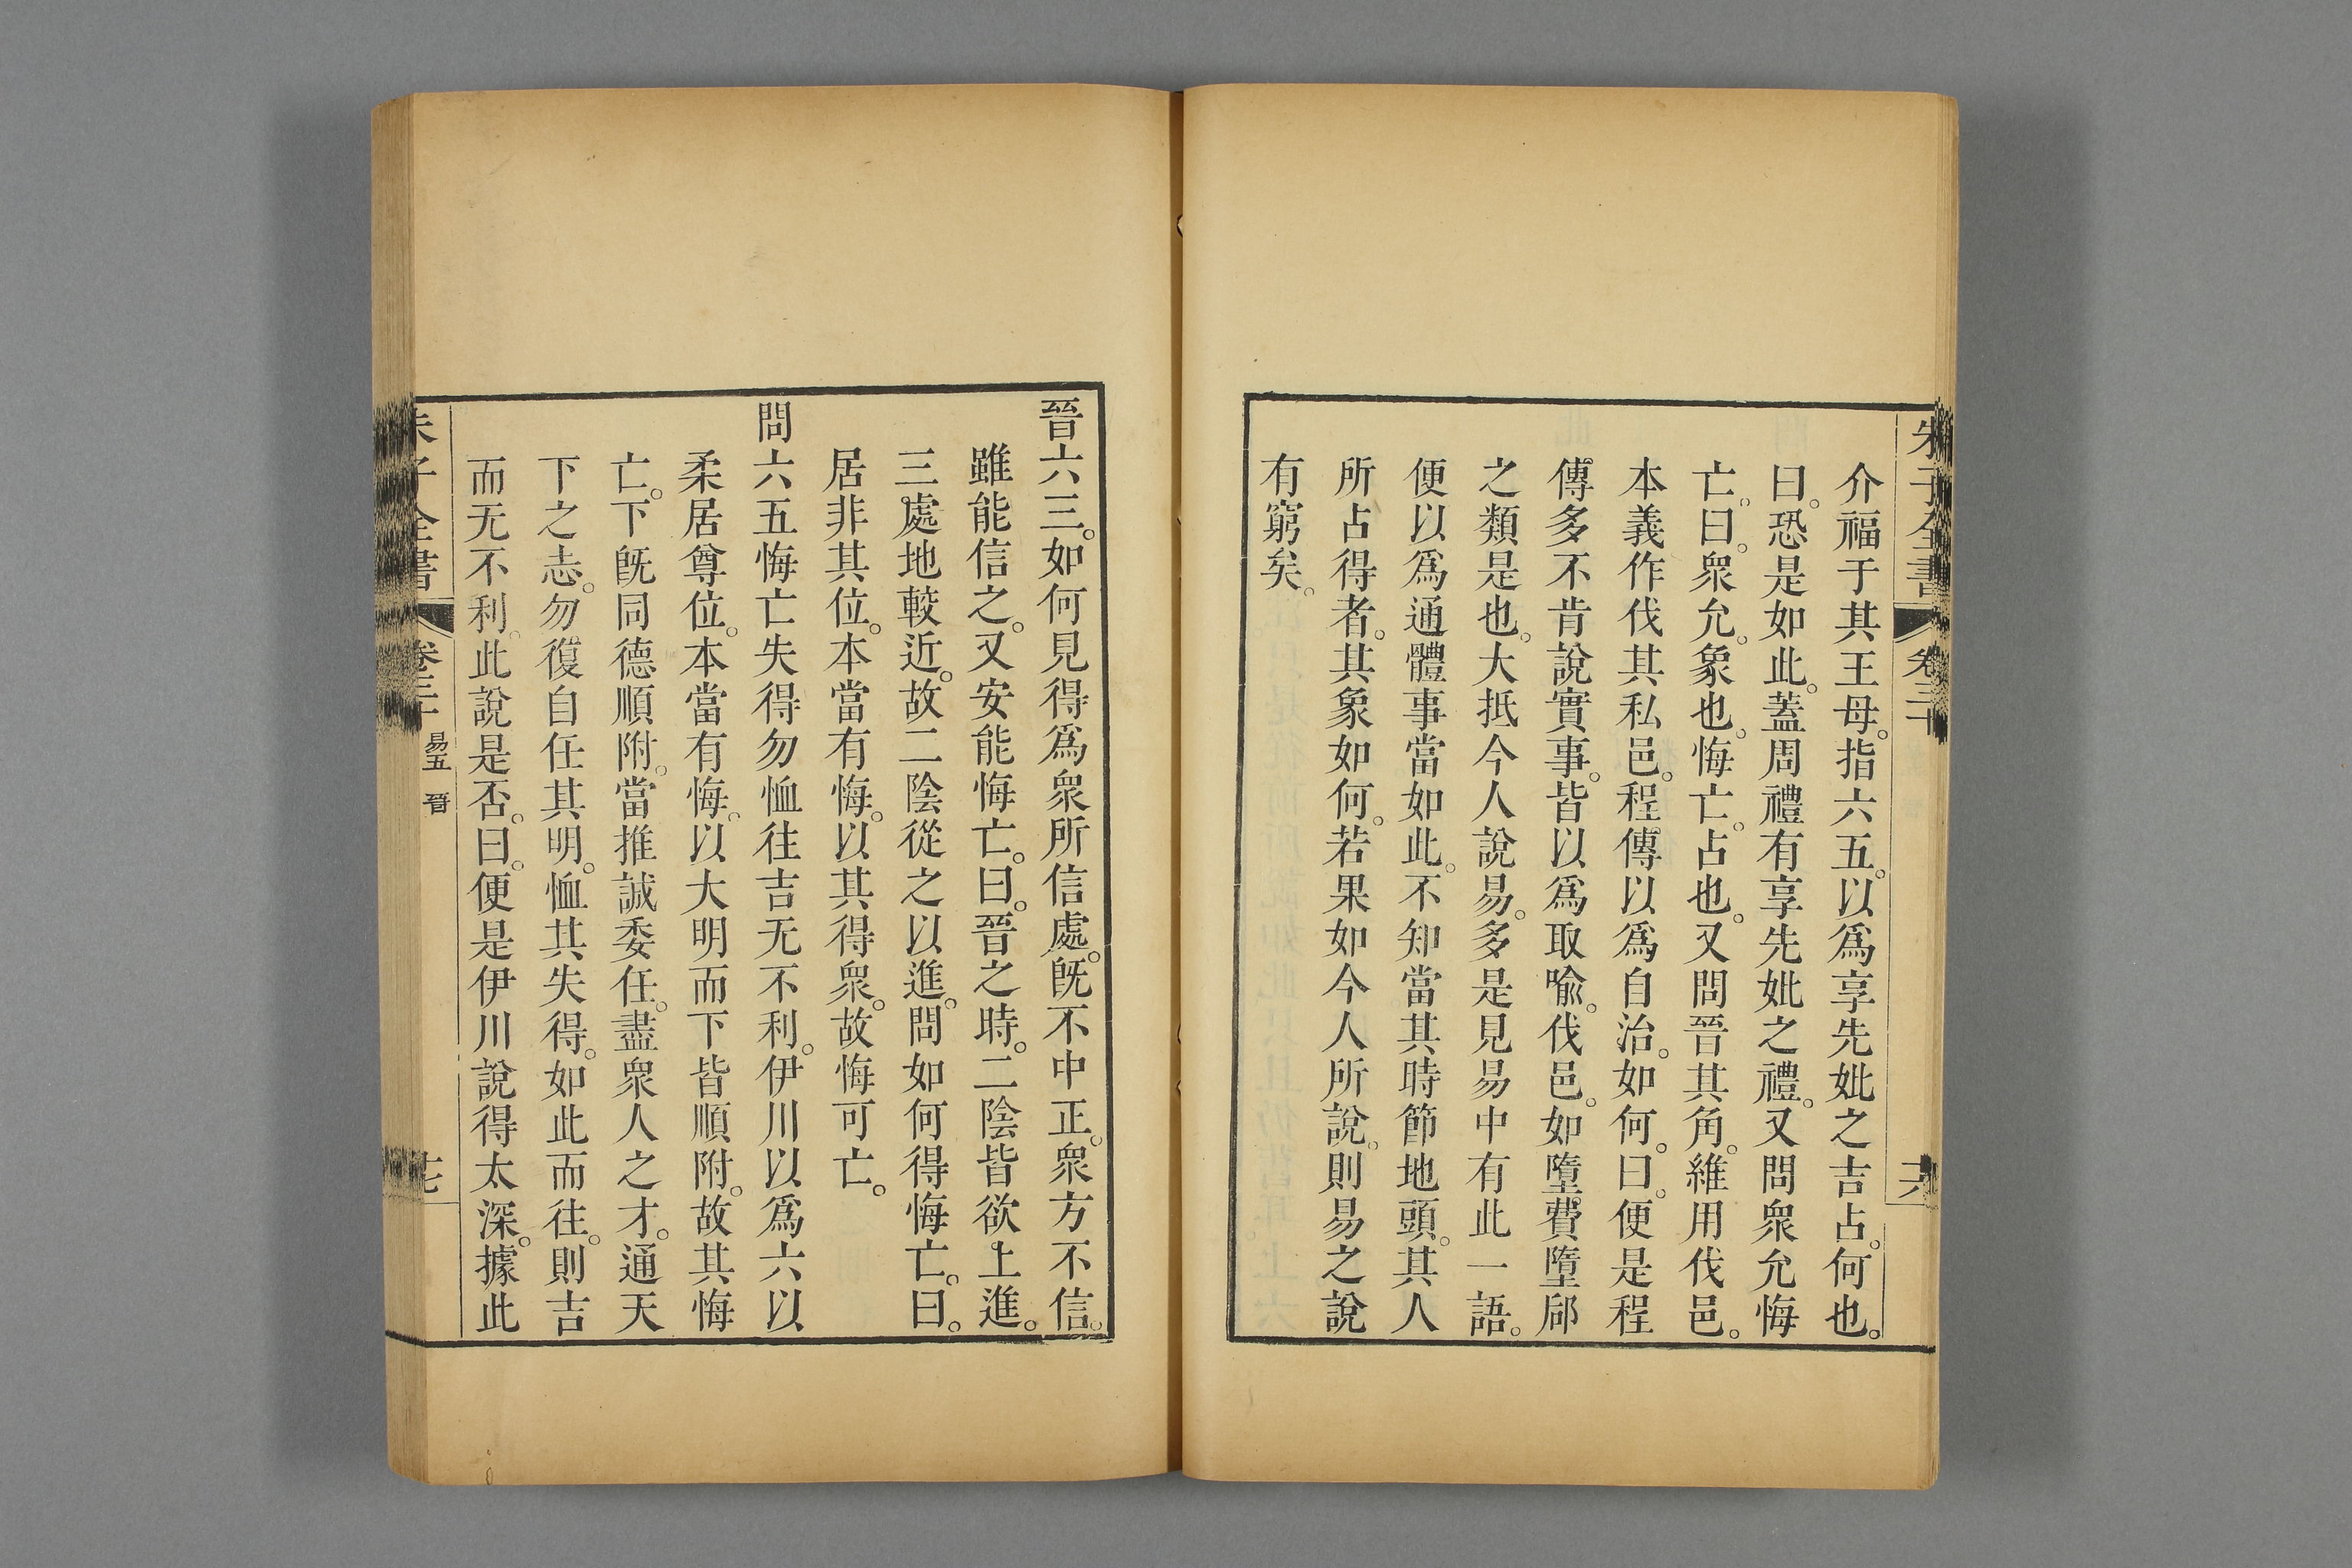 朱子全書 卷三十 十六
介福于其王母。指六五。以爲享先妣之吉占。何也。
曰。恐是如此。蓋周禮有享先妣之禮。又問衆允悔
亡。曰。衆允。象也。悔亡。占也。又問晉其角。維用伐邑。
本義作伐其私邑。程傳以爲自治。如何。曰。便是程
傳多不肯說實事。皆以爲取喩。伐邑。如墮費墮郈
之類是也。大抵今人說易。多是見易中有此一語。
便以爲通體事當如此。不知當其時節地頭。其人
所占得者。其象如何。若果如今人所說。則易之說
有窮矣。
晉六三。如何見得爲衆所信處。旣不中正。衆方不信。
雖能信之。又安能悔亡。曰。晉之時。二陰皆欲上進。
三處地較近。故二陰從之以進。問如何得悔亡。曰。
居非其位。本當有悔。以其得衆。故悔可亡。
問六五悔亡失得勿恤往吉无不利。伊川以爲六以
柔居尊位。本當有悔。以大明而下皆順附。故其悔
亡。下旣同德順附。當推誠委任。盡衆人之才。通天
下之志。勿復自任其明。恤其失得。如此而往。則吉
而无不利。此說是否。曰。便是伊川說得太深。據此
朱子全書 卷三十 易五 晉 十七